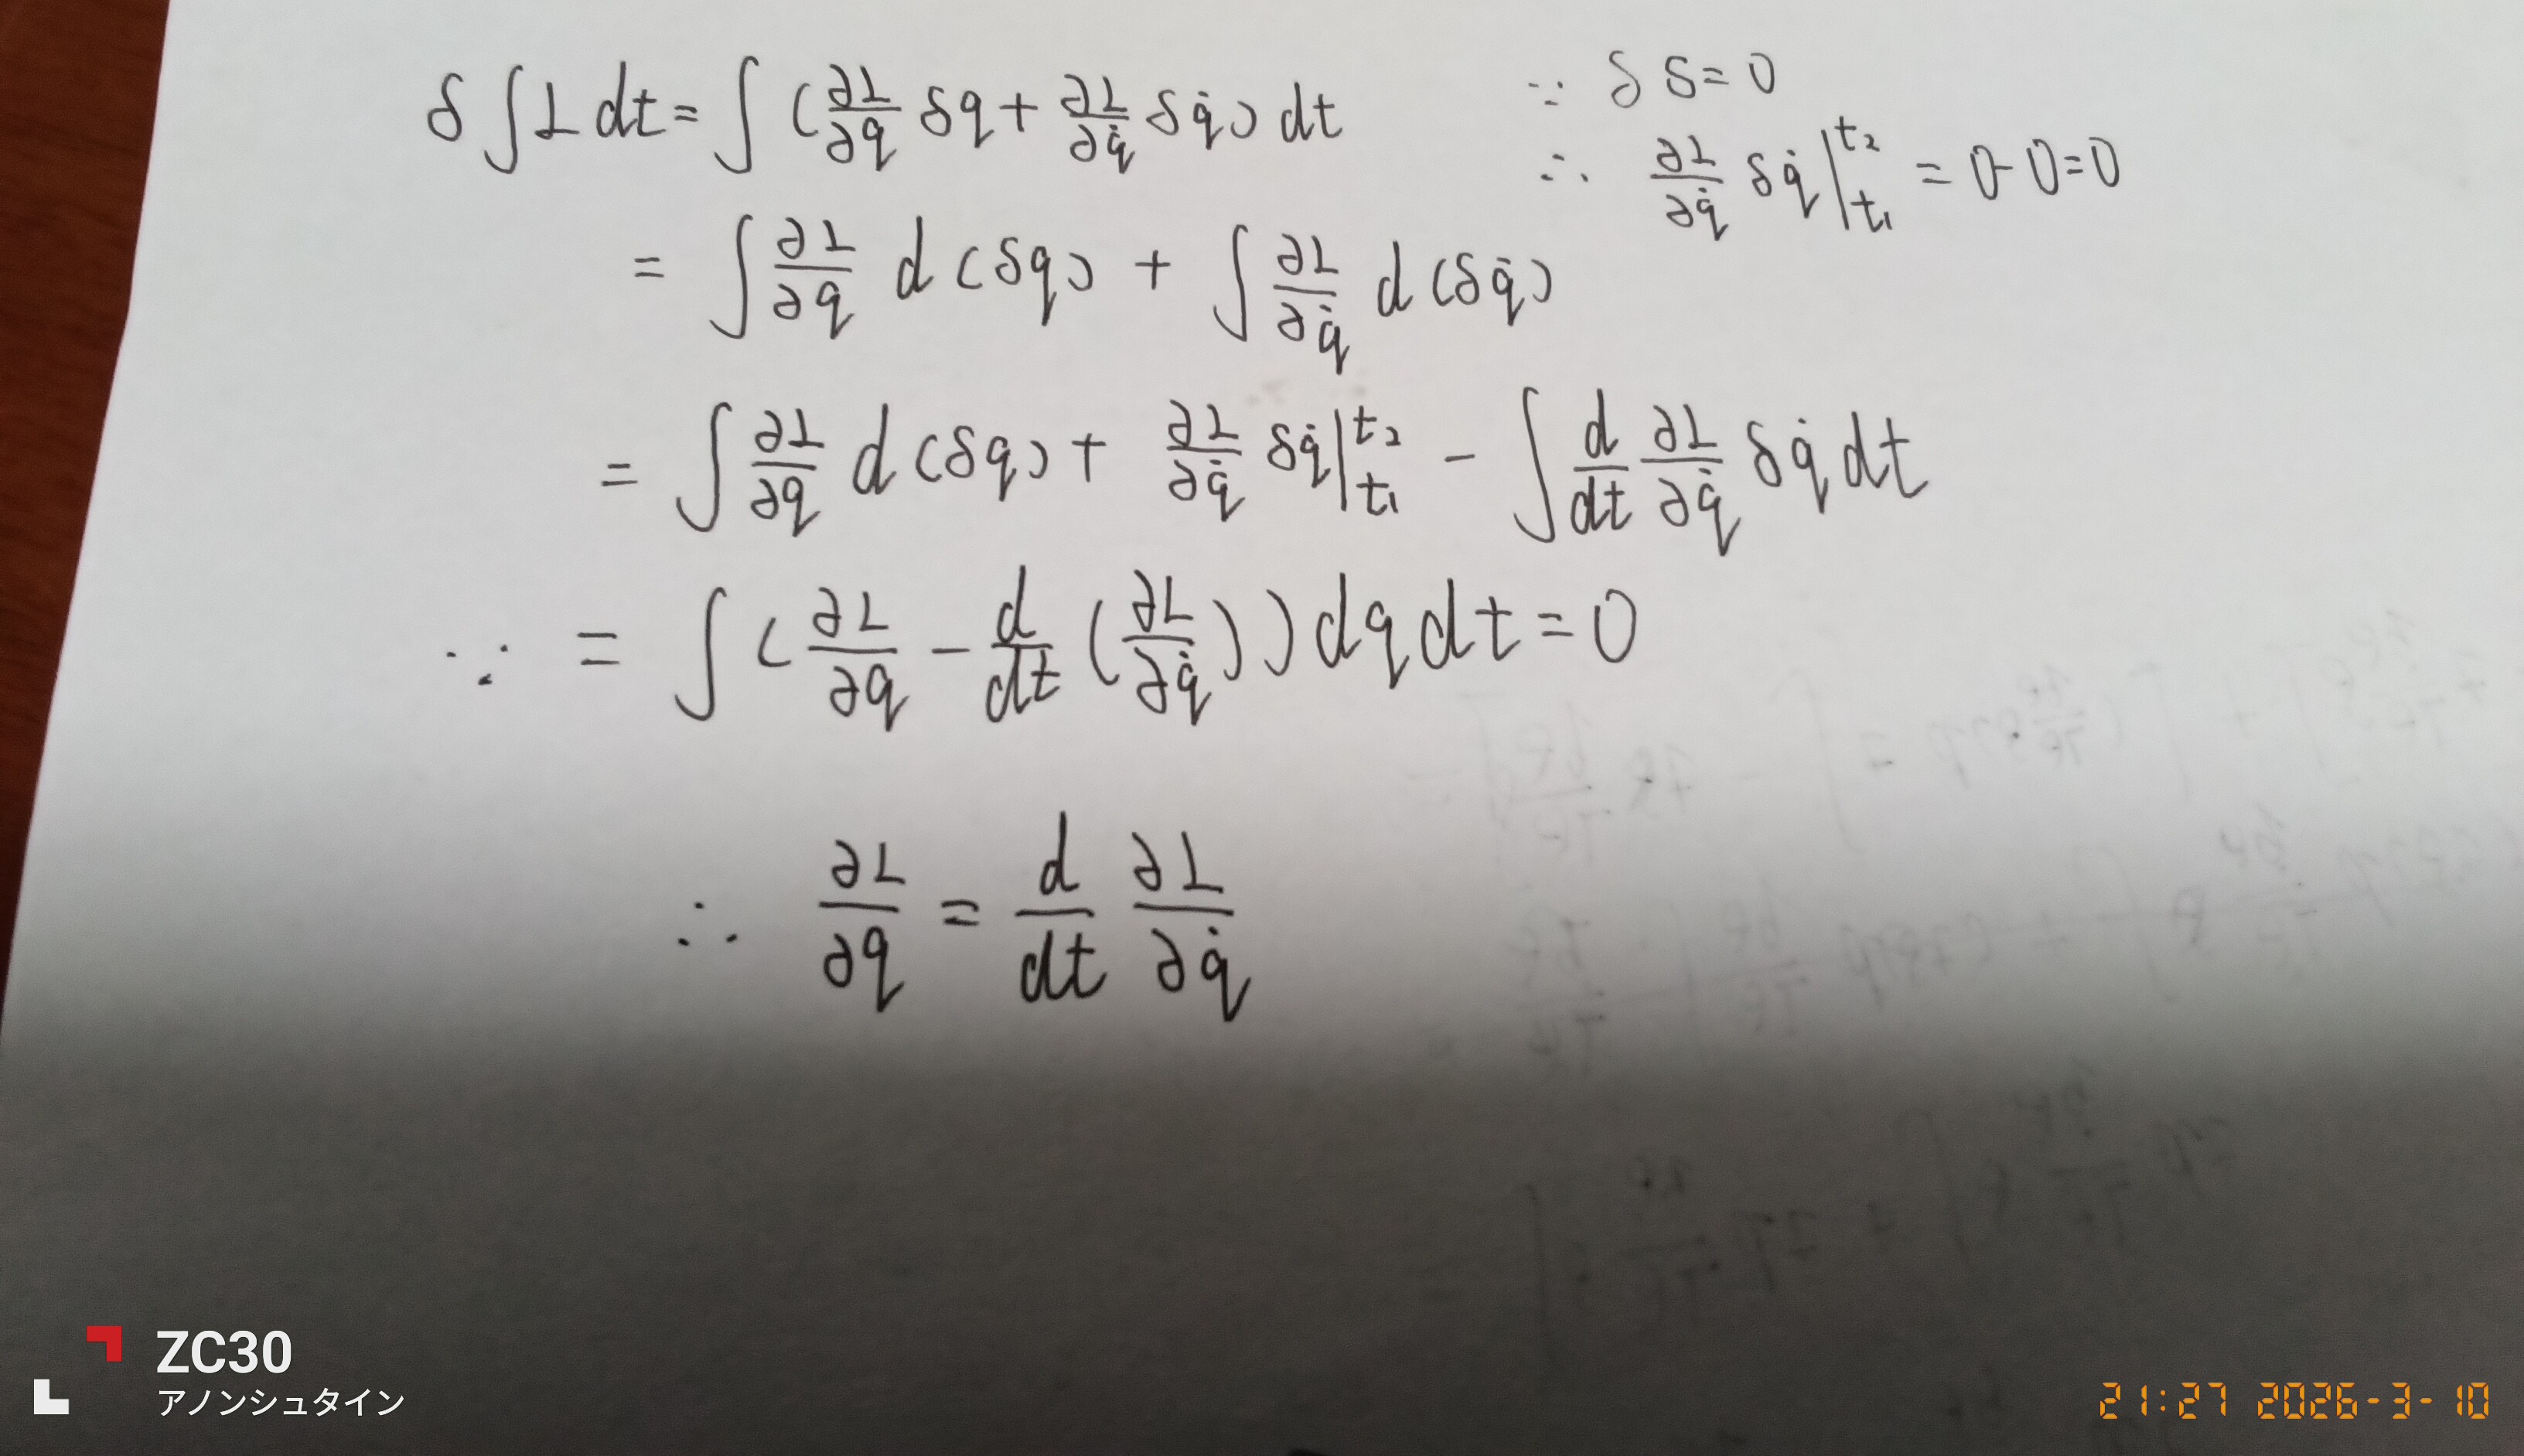 δ∫L dt = ∫(∂L/∂q δq + ∂L/∂q̇ δq̇) dt
∵ δS = 0
∴ ∂L/∂q̇ δq̇ |_{t₁}^{t₂} = 0-0=0
= ∫ ∂L/∂q d(δq) + ∫ ∂L/∂q̇ d(δq̇)
= ∫ ∂L/∂q d(δq) + ∂L/∂q̇ δq̇ |_{t₁}^{t₂} - ∫ d/dt ∂L/∂q̇ δq̇ dt
∵ = ∫(∂L/∂q - d/dt (∂L/∂q̇)) dq dt = 0
∴ ∂L/∂q = d/dt ∂L/∂q̇
ZC30
アノンシュタイン
21:27 2026-3-10